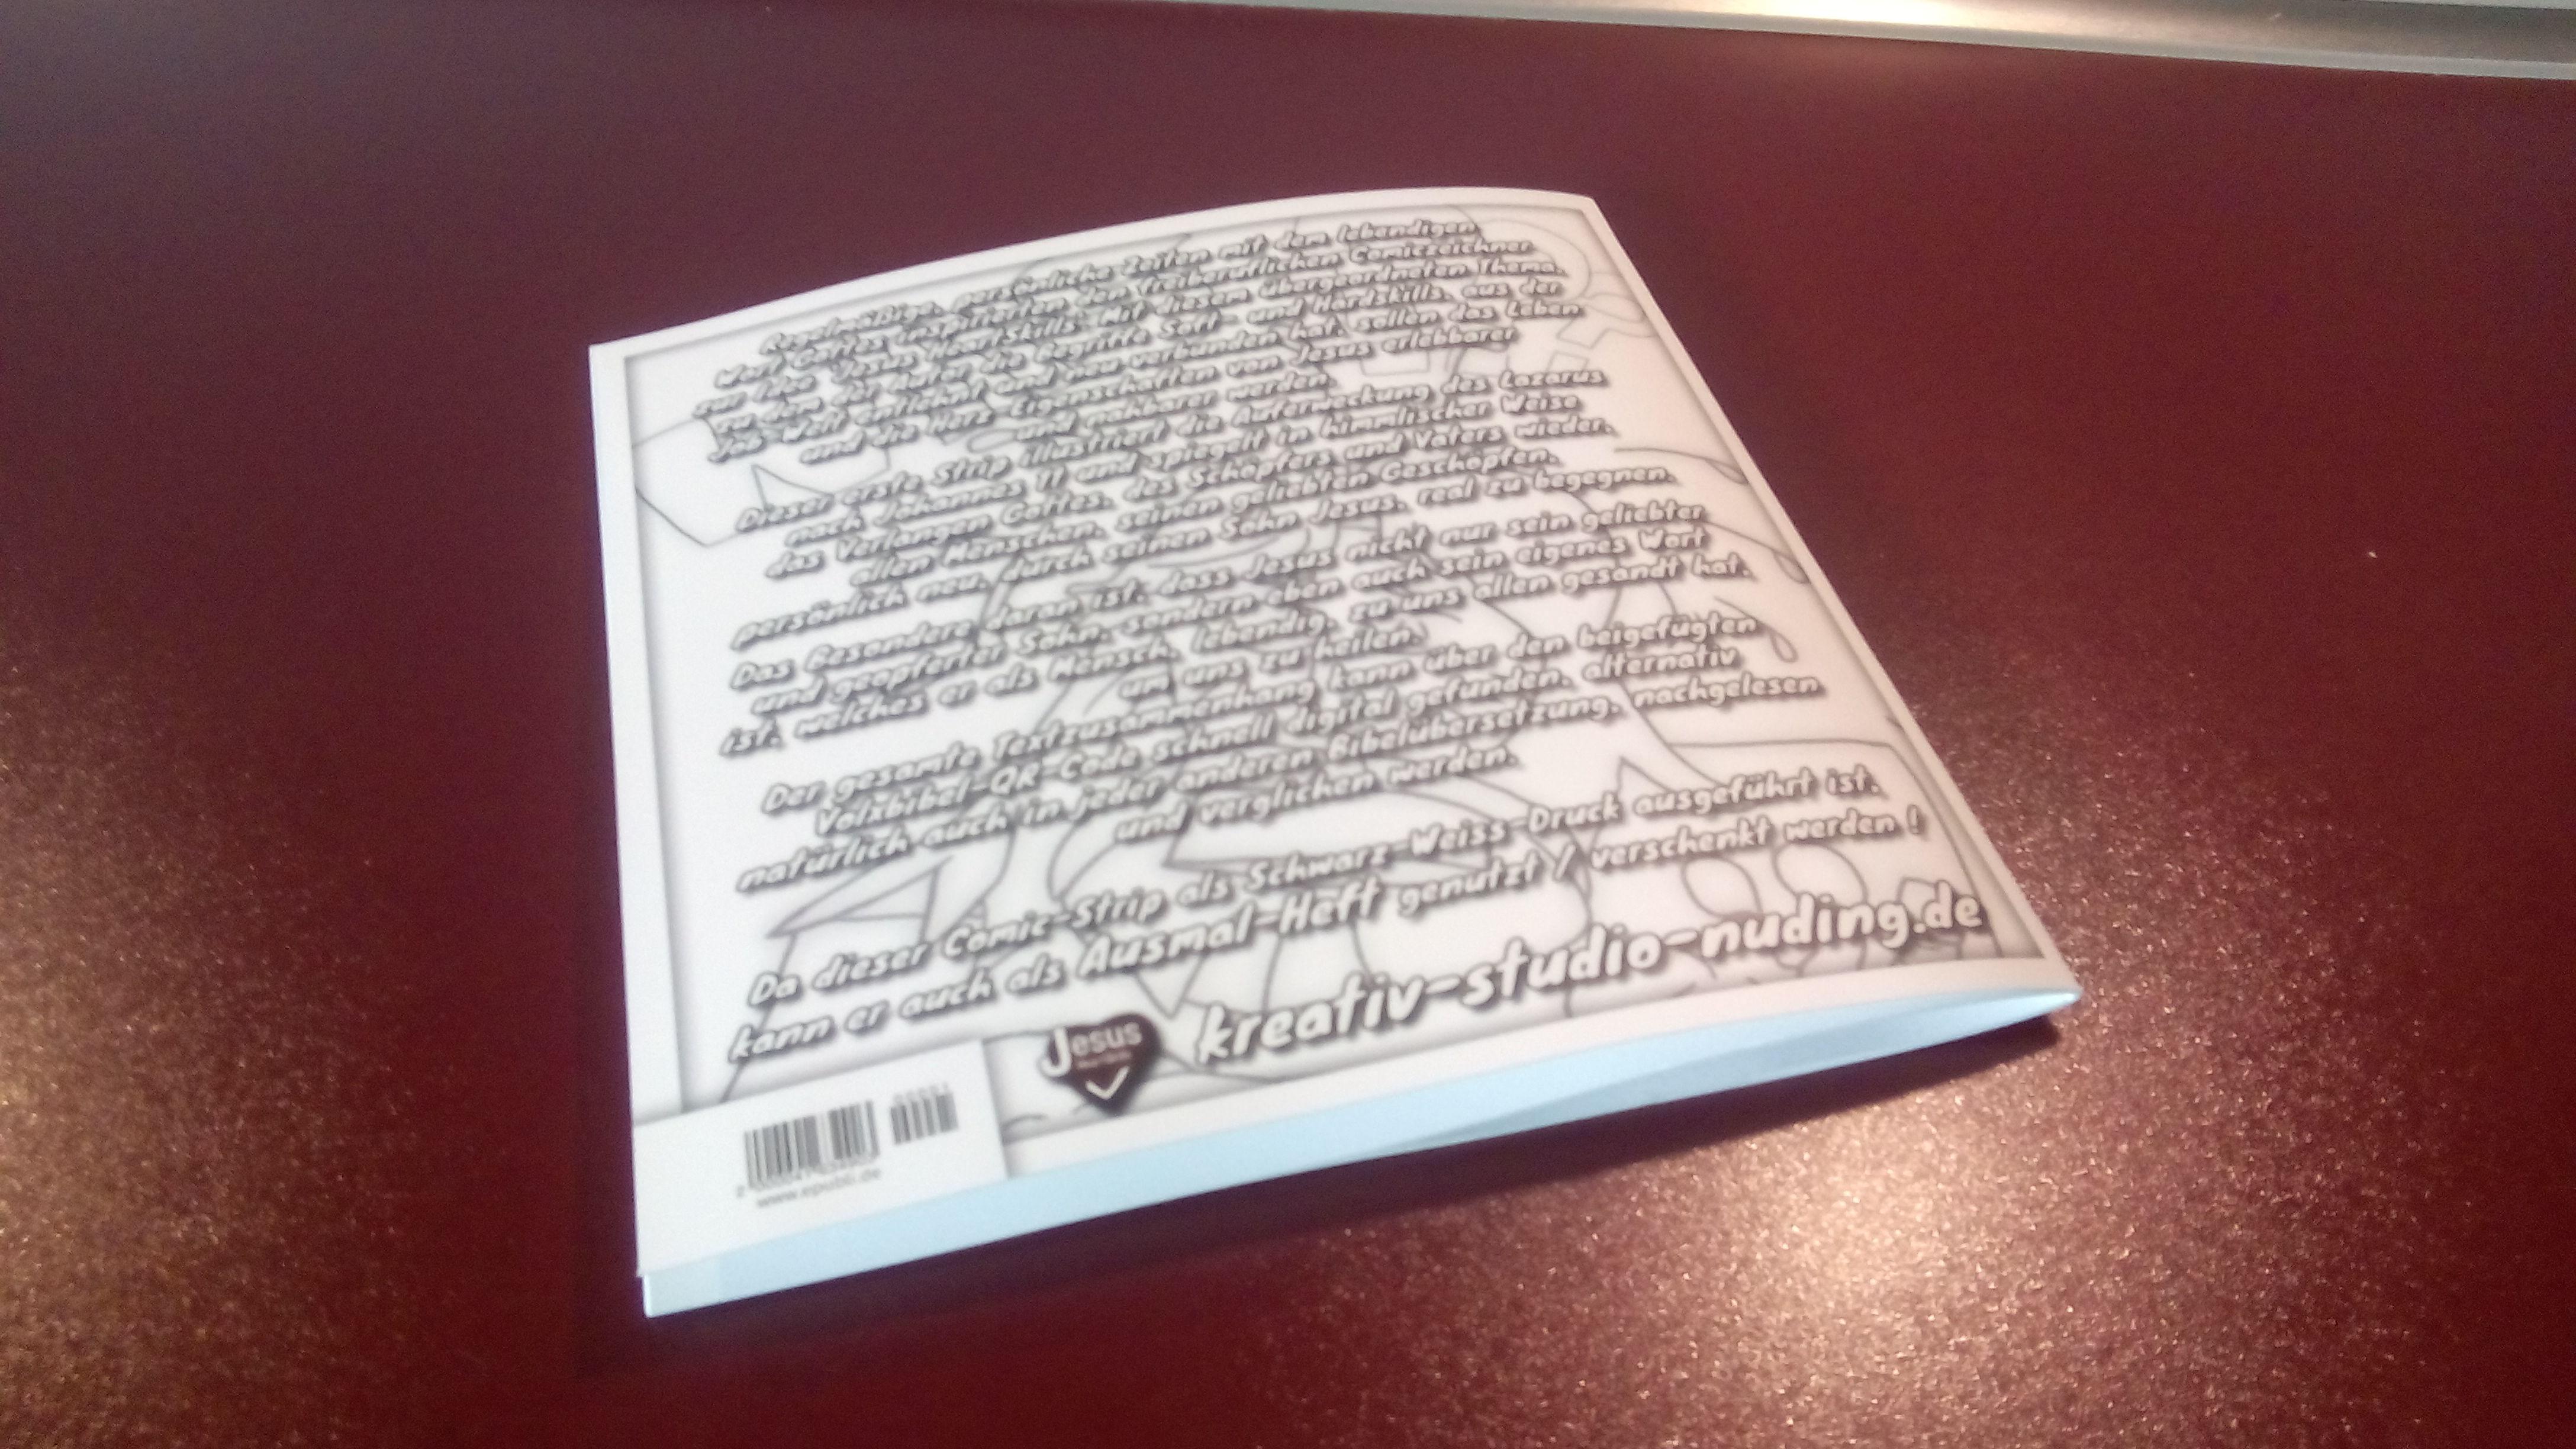 Regelmäßige, persönliche Zeiten mit dem lebendigen
Wort Gottes inspirierten den freiberuflichen Comiczeichner
zur Idee "Jesus HeartSkills". Mit diesem übergeordneten Thema,
zu dem der Autor die Begriffe Soft- und Hardskills, aus der
Job-Welt entlehnt und neu verbunden hat, sollen das Leben
und die Herz-Eigenschaften von Jesus erlebbarer
und nahbarer werden.
Dieser erste Strip illustriert die Auferweckung des Lazarus
nach Johannes 11 und spiegelt in himmlischer Weise
das Verlangen Gottes, des Schöpfers und Vaters wieder,
allen Menschen, seinen geliebten Geschöpfen,
persönlich neu, durch seinen Sohn Jesus, real zu begegnen.
Das Besondere daran ist, dass Jesus nicht nur sein geliebter
und geopferter Sohn, sondern eben auch sein eigenes Wort
ist, welches er als Mensch, lebendig, zu uns allen gesandt hat,
um uns zu heilen.
Der gesamte Textzusammenhang kann über den beigefügten
Volxbibel-QR-Code schnell digital gefunden, alternativ
natürlich auch in jeder anderen Bibelübersetzung, nachgelesen
und verglichen werden.
Da dieser Comic-Strip als Schwarz-Weiss-Druck ausgeführt ist,
kann er auch als Ausmal-Heft genutzt / verschenkt werden !
Jesus
kreativ-studio-nuding.de
www.epubli.de